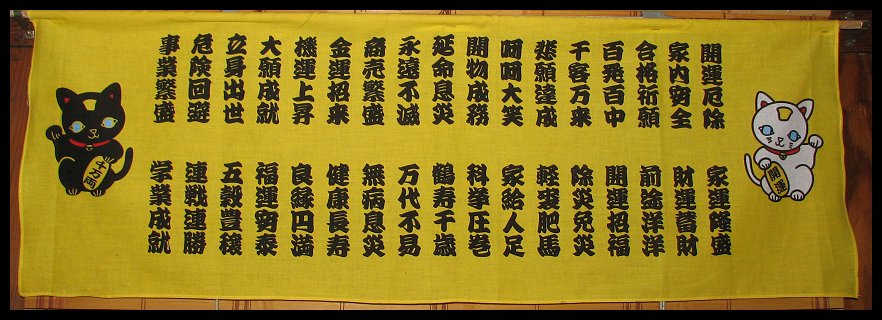 開運厄除
家内安全
合格祈願
百発百中
千客万来
悲願達成
呵呵大笑
開物成務
延命息災
永遠不滅
商売繁盛
金運招来
機運上昇
大願成就
立身出世
危険回避
事業繁盛
家運隆盛
財運蓄財
前途洋洋
開運招福
除災免災
軽裘肥馬
家給人足
科挙圧巻
鶴寿千歳
万代不易
無病息災
健康長寿
良縁円満
福運安泰
五穀豊穣
連戦連勝
学業成就
開運
千万両